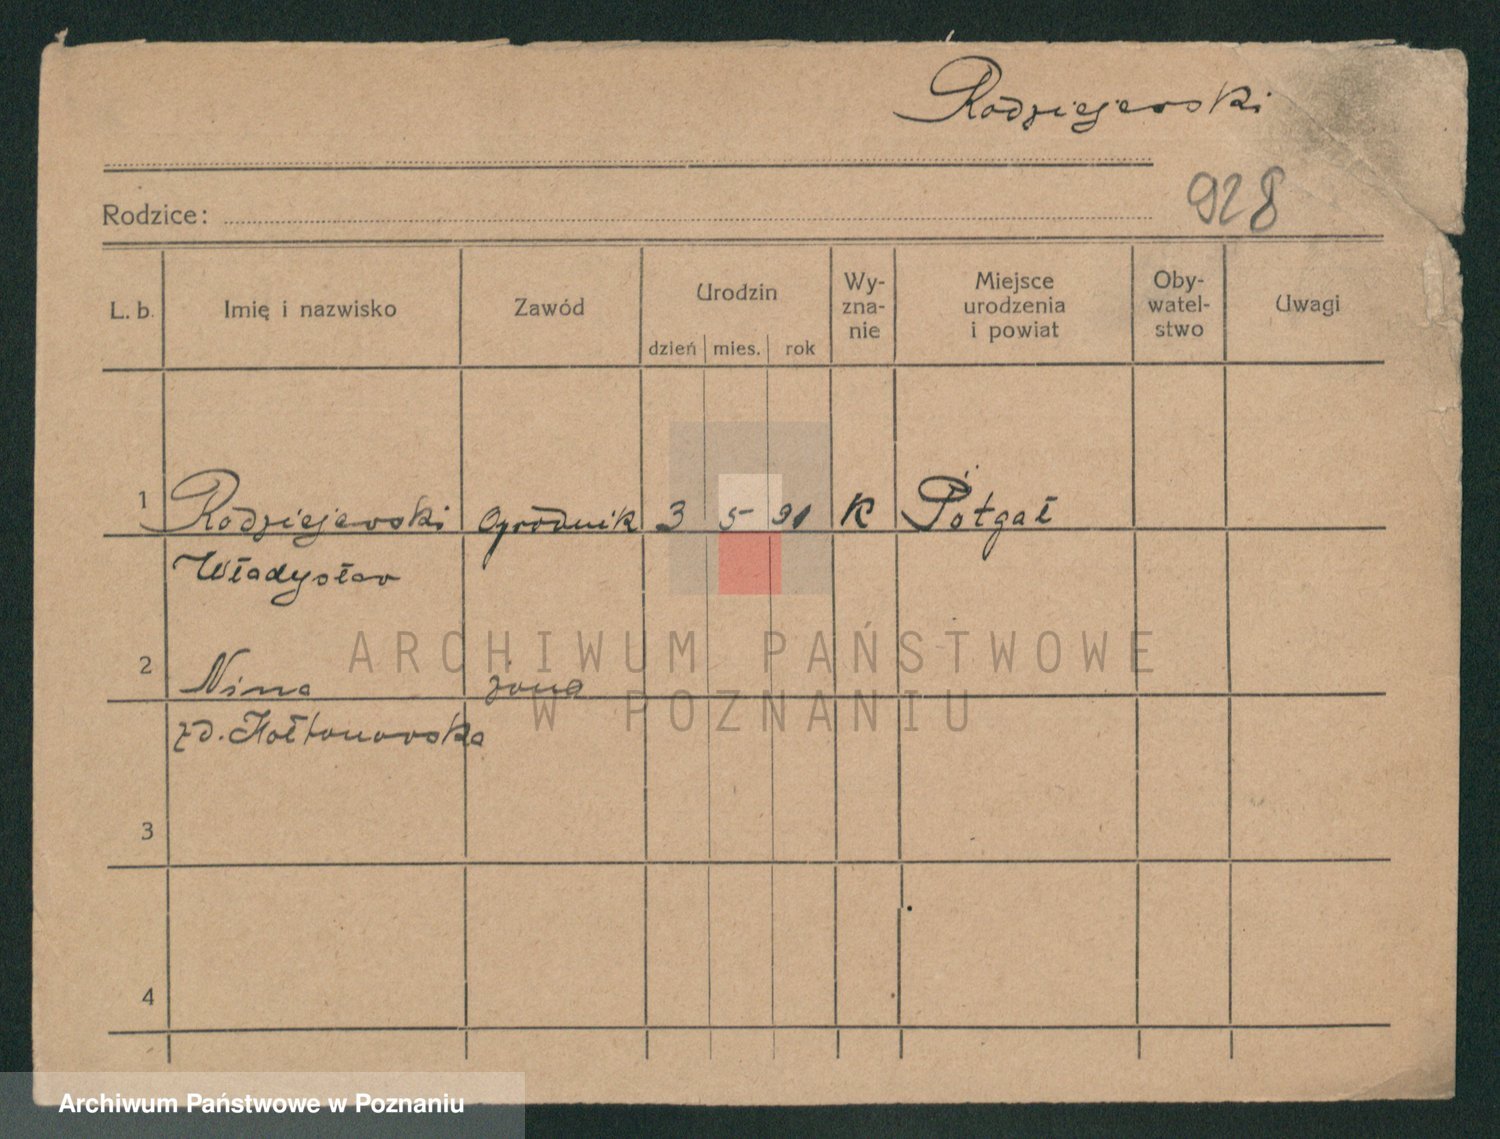 Rodziejewski
928
Rodzice:
L. b. Imię i nazwisko Zawód Urodzin dzień mies. rok Wy-zna-nie Miejsce urodzenia i powiat Oby-watel-stwo Uwagi
1 Rodziejewski Ogrodnik 3 5 91 K
Władysław
2 Nina żona
zd.
3
4
ARCHIWUM PAŃSTWOWE
W POZNANIU
Archiwum Państwowe w Poznaniu